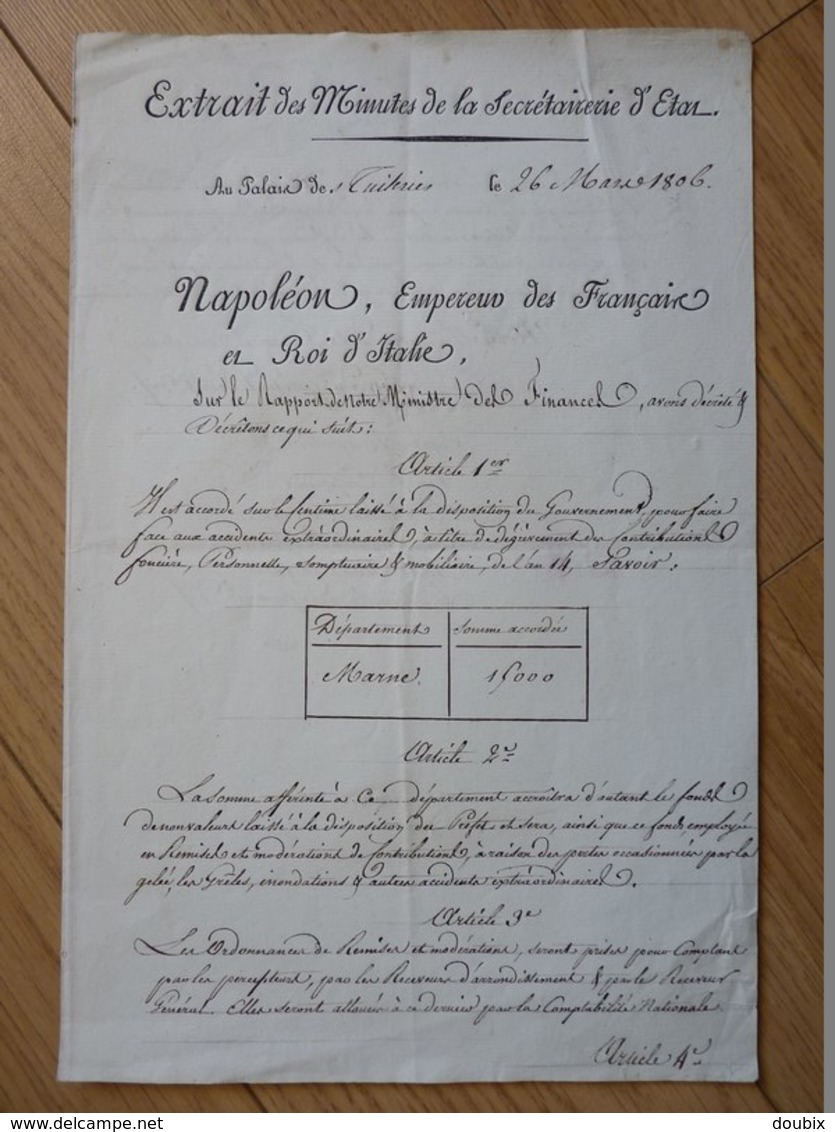 Extrait des Minutes de la Secrétairerie d'Etat.
Au Palais des Tuileries le 26 Mars 1806.
Napoléon, Empereur des Français
et Roi d'Italie,
Sur le Rapport de Notre Ministre des Finances, avons décrété &
Décrétons ce qui suit:
Article 1er
Il est accordé sur le Centime laissé à la disposition du Gouvernement, pour faire
face aux accidents extraordinaires, à titre de dégrèvement des Contributions
foncière, Personnelle, somptuaire & mobiliaire, de l'an 14, Savoir:
Département Somme accordée
Marne. 15000
Article 2e
La somme afférente à Ce département accroîtra d'autant le fonds
de nonvaleurs laissé à la disposition du Préfet et sera, ainsi que ce fonds, employée
en Remises et modérations de Contributions, à raison des pertes occasionnées par la
gelée, les Grêles, inondations & autres accidents extraordinaires.
Article 3e
Les Ordonnances de Remises et modérations, seront prises pour Comptant
par les percepteurs, par les Receveurs d'arrondissement & par le Receveur
Général. Elles seront allouées à ce dernier par la Comptabilité Nationale.
Article 4e
www.delcampe.net
doubix